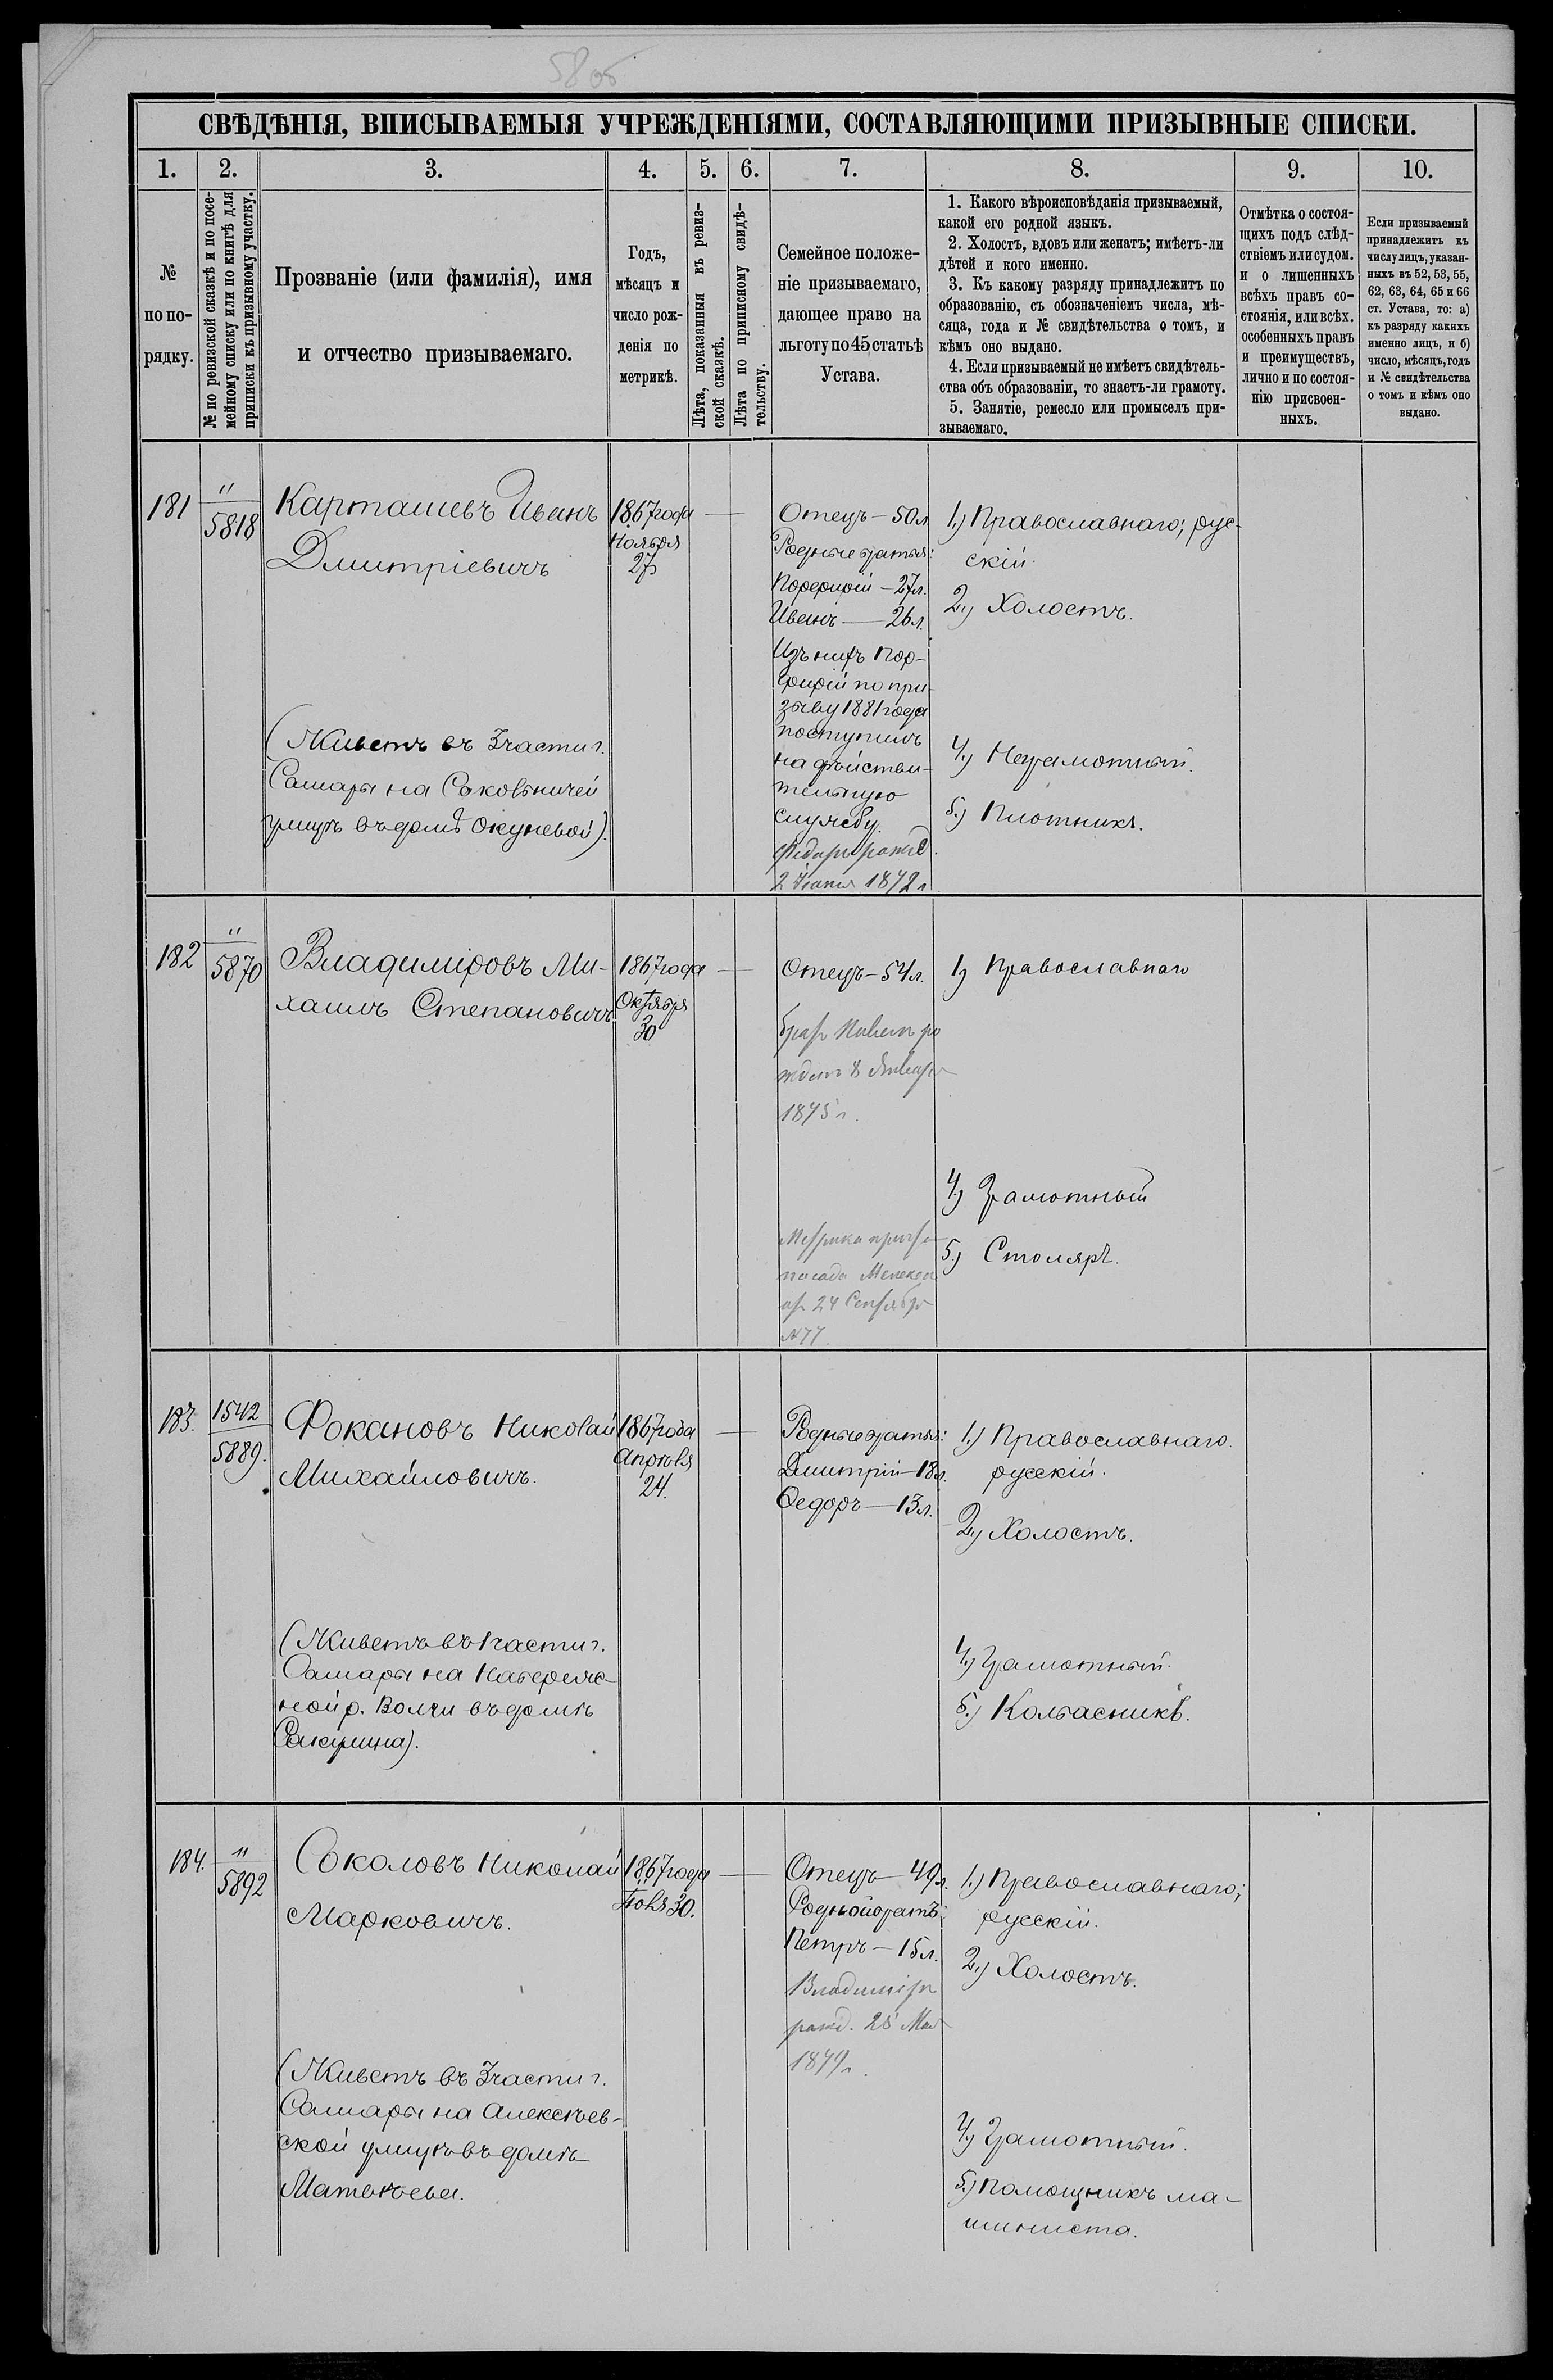 58 об
СВѢДѢНІЯ, ВПИСЫВАЕМЫЯ УЧРЕЖДЕНІЯМИ, СОСТАВЛЯЮЩИМИ ПРИЗЫВНЫЕ СПИСКИ.
1.
2.
3.
4.
5.
6.
7.
8.
9.
10.
№
по по-
рядку.
№ по ревизской сказкѣ и по посе-
мейному списку или по книгѣ для
приписки къ призывному участку.
Прозваніе (или фамилія), имя
и отчество призываемаго.
Годъ,
мѣсяцъ и
число рож-
денія по
метрикѣ.
Лѣта, показанныя въ ревиз-
ской сказкѣ.
Лѣта по приписному свидѣ-
тельству.
Семейное положе-
ніе призываемаго,
дающее право на
льготу по 45 статьѣ
Устава.
1. Какого вѣроисповѣданія призываемый,
какой его родной языкъ.
2. Холостъ, вдовъ или женатъ; имѣетъ-ли
дѣтей и кого именно.
3. Къ какому разряду принадлежитъ по
образованію, съ обозначеніемъ числа, мѣ-
сяца, года и № свидѣтельства о томъ, и
кѣмъ оно выдано.
4. Если призываемый не имѣетъ свидѣтель-
ства объ образованіи, то знаетъ-ли грамоту.
5. Занятіе, ремесло или промыселъ при-
зываемаго.
Отмѣтка о состоя-
щихъ подъ слѣд-
ствіемъ или судом.
и о лишенныхъ
всѣхъ правъ со-
стоянія, или всѣх.
особенныхъ правъ
и преимуществъ,
лично и по состоя-
нію присвоен-
ныхъ.
Если призываемый
принадлежитъ къ
числу лицъ, указан-
ныхъ въ 52, 53, 55,
62, 63, 64, 65 и 66
ст. Устава, то: а)
къ разряду какихъ
именно лицъ, и б)
число, мѣсяцъ, годъ
и № свидѣтельства
о томъ и кѣмъ оно
выдано.
181
"
5818
Карташевъ Иванъ
Дмитріевичъ
(Живетъ въ 3 части г.
Самары на Соковничей
улицѣ въ домѣ Окуневой).
1867 года
Ноября
27
—
Отецъ – 50 л.
Родные братья:
Порфирій – 27 л.
Иванъ – 26 л.
Изъ нихъ Пор-
фирій по при-
зыву 1881 года
поступилъ
на дѣйстви-
тельную
службу.
Федоръ рожд.
2 1872 г.
1.) Православнаго; рус-
скій.
2.) Холостъ.
4.) Неграмотный.
5.) Плотникъ.
182
"
5870
Владиміровъ Ми-
хаилъ Степановичъ
1867 года
Октября
30
—
Отецъ – 54 л.
братъ Павелъ ро
жденъ 8 Января
1875 г.
Метрика причта
посада Мелекес
отъ 24 Сентября
№ 77
1) Православнаго
4.) Грамотный
5.) Столяръ.
183.
1542
5889.
Фокановъ Николай
Михайловичъ.
(Живетъ въ 1 части г.
Самары на Набереж-
ной р. Волги въ домѣ
Сакулина).
1867 года
Апрѣля
24.
—
Родные братья:
Дмитрій – 18 л.
Ѳедоръ – 13 л.
1.) Православнаго.
русскій.
2.) Холостъ.
4.) Грамотный.
5.) Колбасникъ.
184.
"
5892
Соколовъ Николай
Марковичъ.
(Живетъ въ 3 части г.
Самары на Алексѣев-
ской улицѣ въ домѣ
Матвѣева.
1867 года
30.
—
Отецъ – 49 л.
Родной братъ:
Петръ – 15 л.
Владиміръ
рожд. 28 Мая
1879 г.
1.) Православнаго;
русскій.
2.) Холостъ.
4.) Грамотный.
5.) Помощникъ ма-
шиниста.